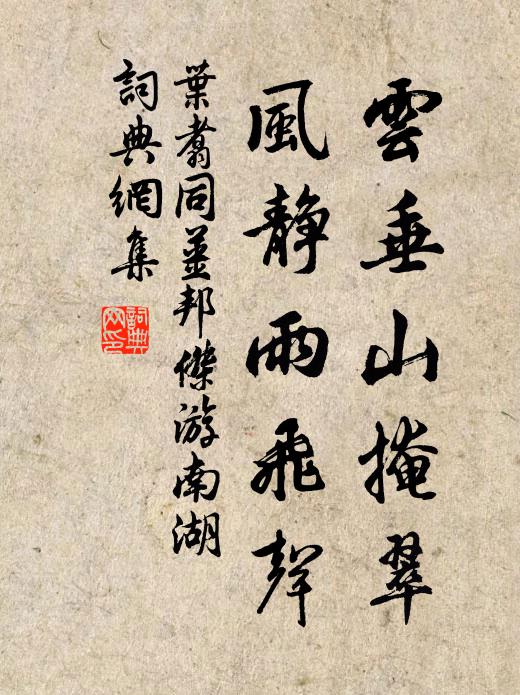 雲垂山掩翠
風靜雨飛聲
葉翥同姜邦傑游南湖
詞典網集
詞典網印